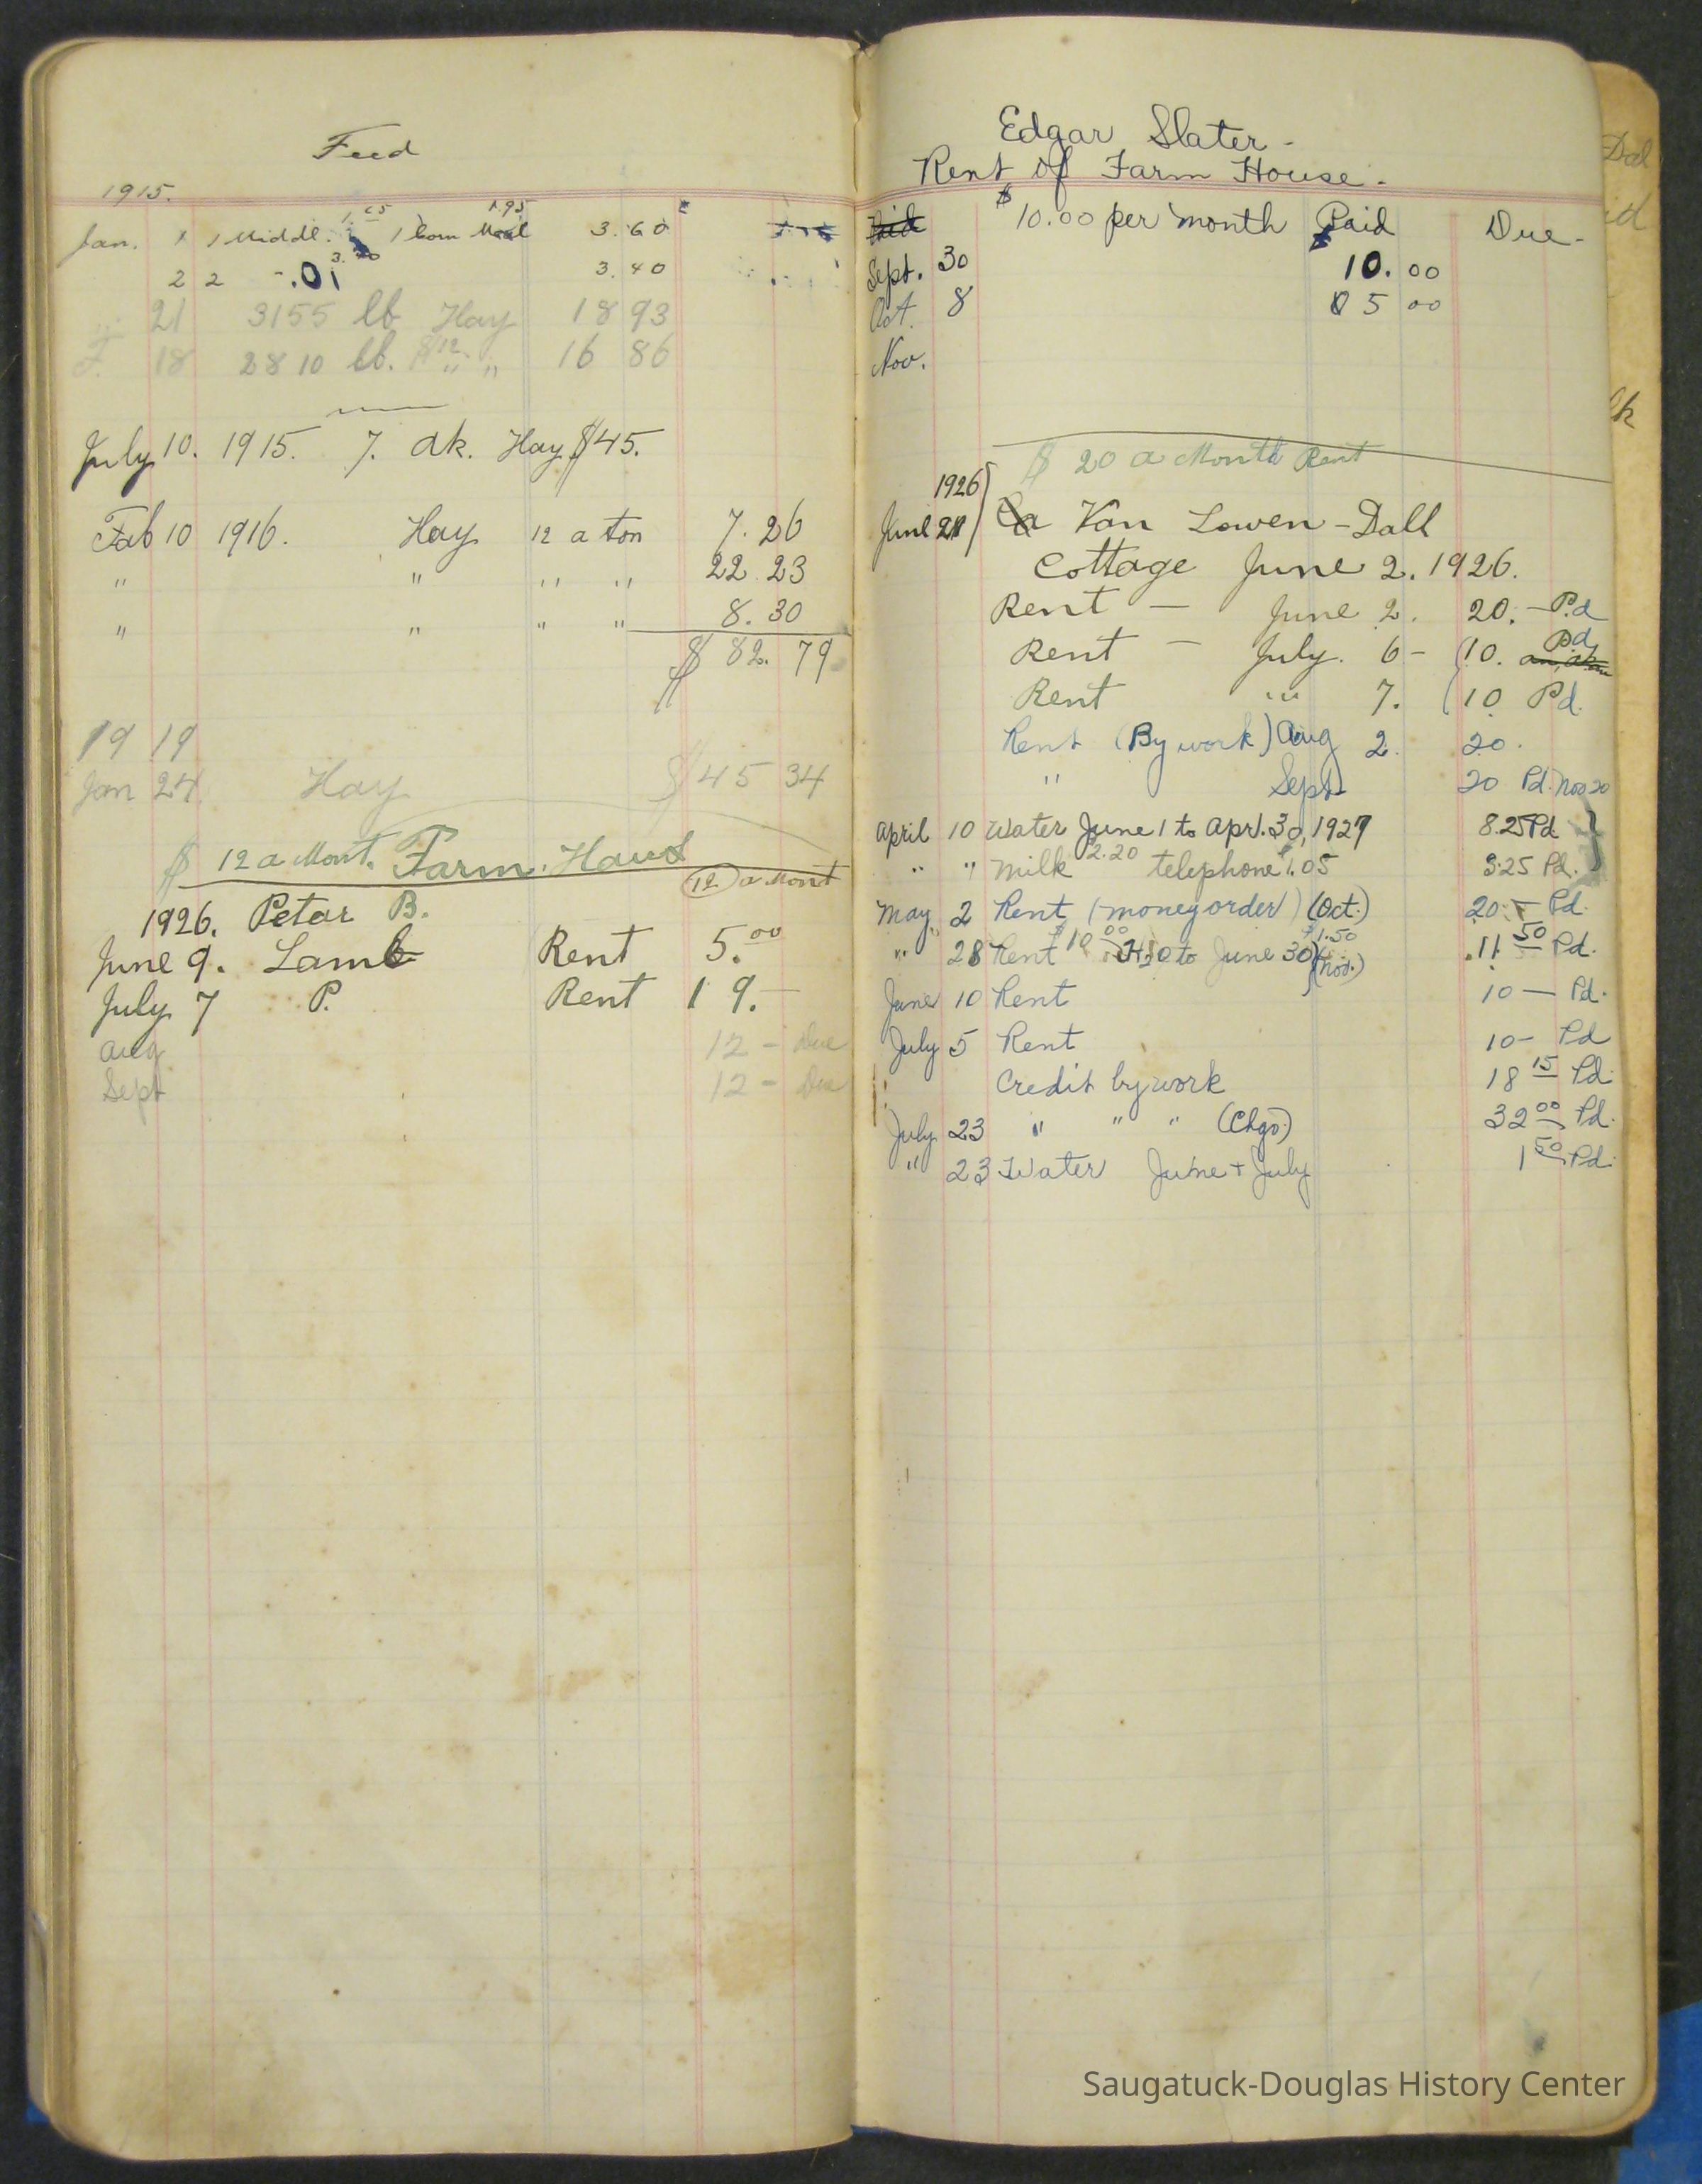 Feed
1915.
Jan. 1 1 Middl. 1 Corn Meal 1.95 3.60
2 2 3.40
21 3155 lb Hay 18 93
F. 18 2810 lb. $12. " " 16 86
July 10. 1915. 7. ak. Hay $45.
Feb 10 1916. Hay 12 a ton 7.26
" " " " 22.23
" " " " 8.30
$ 82.79
19 19
Jan 24 Hay $45 34
$ 12 a Mont. Farm. Haus
12 a Mont
1926. Petar B.
June 9. Lamb Rent 5.00
July 7 P. Rent 19.—
Aug 12 - Due
Sept 12 - Due
Edgar Slater -
Rent of Farm House -
$10.00 per month Paid Due -
Sept. 30 10.00
Oct. 8 5 00
Nov.
$ 20 a Month Rent
1926
June Van Lowen - Dall
Cottage June 2. 1926.
Rent — June 2. 20. — Pd
Rent — July. 6 - (10. Pd
Rent " 7. (10 Pd.
Rent (By work) Aug 2. 20.
" Sept 20 Pd. Nov 20
April 10 Water June 1 to Apr. 30, 1927 8.25 Pd
" " Milk 2.20 telephone 1.05 3.25 Pd.
May 2 Rent (money order) (Oct.) 20.— Pd.
" 28 Rent $10 00 H2O to June 30 $1.50 (Nov.) 11 50 Pd.
June 10 Rent 10 — Pd.
July 5 Rent 10 - Pd
Credit by work 18 15 Pd.
July 23 " " " (Chgo.) 32 00 Pd.
" 23 Water June + July 1 50 Pd.
Dal
id
lk
Saugatuck-Douglas History Center